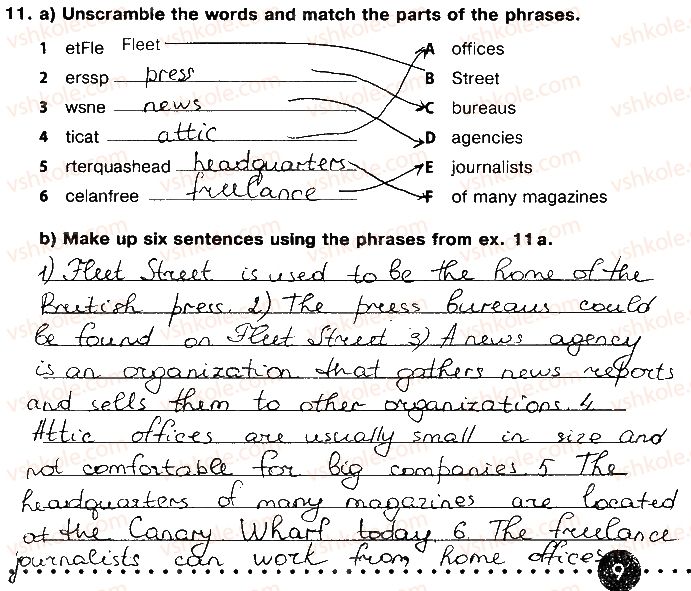 11. a) Unscramble the words and match the parts of the phrases.
1 etFle Fleet A offices
2 erssp press B Street
3 wsne news C bureaus
4 ticat attic D agencies
5 rterquashead headquarters E journalists
6 celanfree freelance F of many magazines
b) Make up six sentences using the phrases from ex. 11a.
1) Fleet Street is used to be the home of the
British press. 2) The press bureaus could
be found on Fleet Street 3) A news agency
is an organization that gathers news reports
and sells them to other organizations. 4
Attic offices are usually small in size and
not comfortable for big companies. 5 The
headquarters of many magazines are located
at the Canary Wharf today. 6 The freelance
journalists can work from home offices
9
vshkole.com